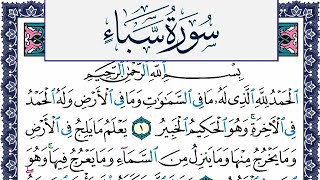 سُورَةُ سَبَإٍ
بِسْمِ ٱللَّهِ ٱلرَّحْمَٰنِ ٱلرَّحِيمِ
ٱلْحَمْدُ لِلَّهِ ٱلَّذِى لَهُۥ مَا فِى ٱلسَّمَٰوَٰتِ وَمَا فِى ٱلْأَرْضِ وَلَهُ ٱلْحَمْدُ
فِى ٱلْأَخِرَةِ ۚ وَهُوَ ٱلْحَكِيمُ ٱلْخَبِيرُ ١ يَعْلَمُ مَا يَلِجُ فِى ٱلْأَرْضِ
وَمَا يَخْرُجُ مِنْهَا وَمَا يَنزِلُ مِنَ ٱلسَّمَآءِ وَمَا يَعْرُجُ فِيهَا ۚ وَهُوَ